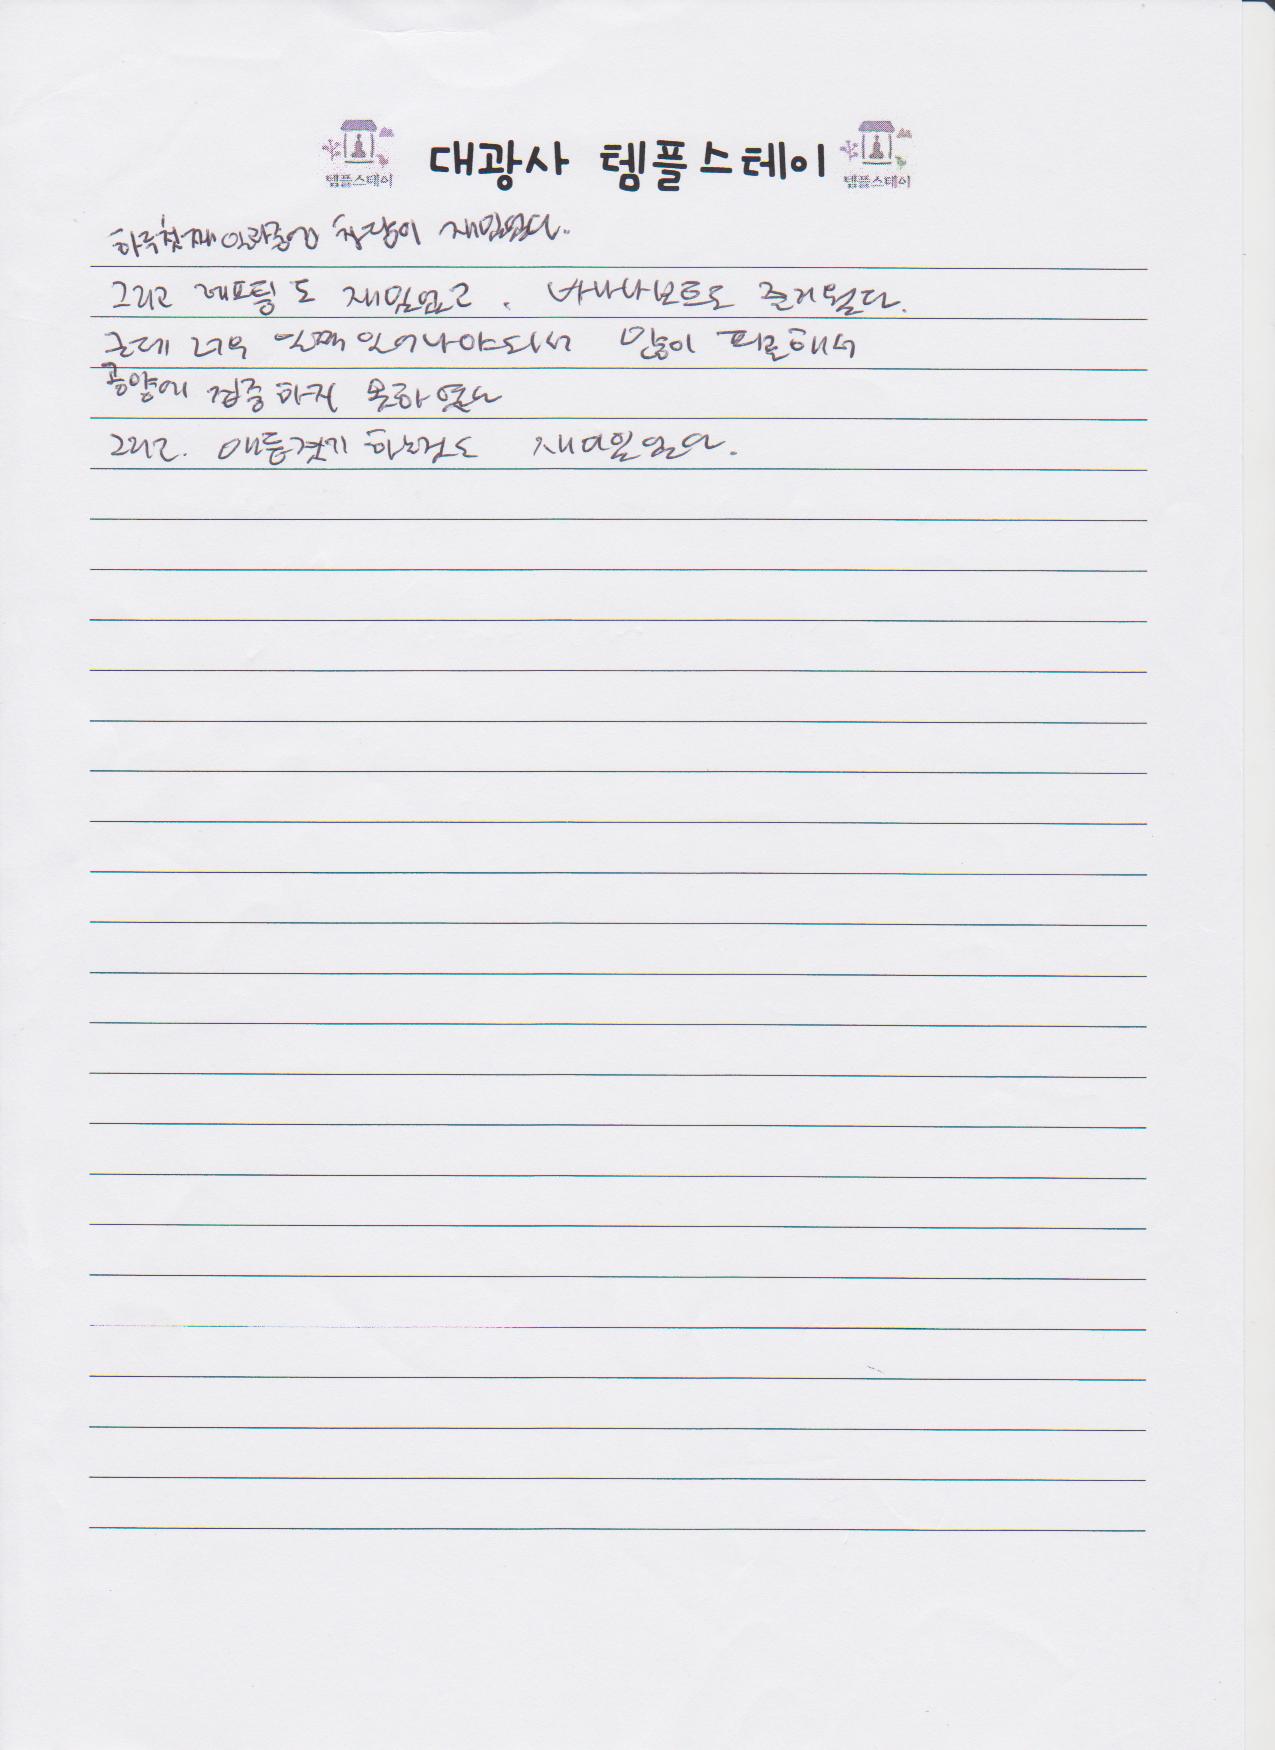 템플스테이 대광사 템플스테이 템플스테이
하루 첫째 재밌었다.
그리고 레프팅도 재밌었고. 바나나보트도 즐거웠다.
근데 너무 일찍 일어나야되서 많이 피로해서
공양에 집중하지 못하였다
그리고. 하는것도 재미있었다.